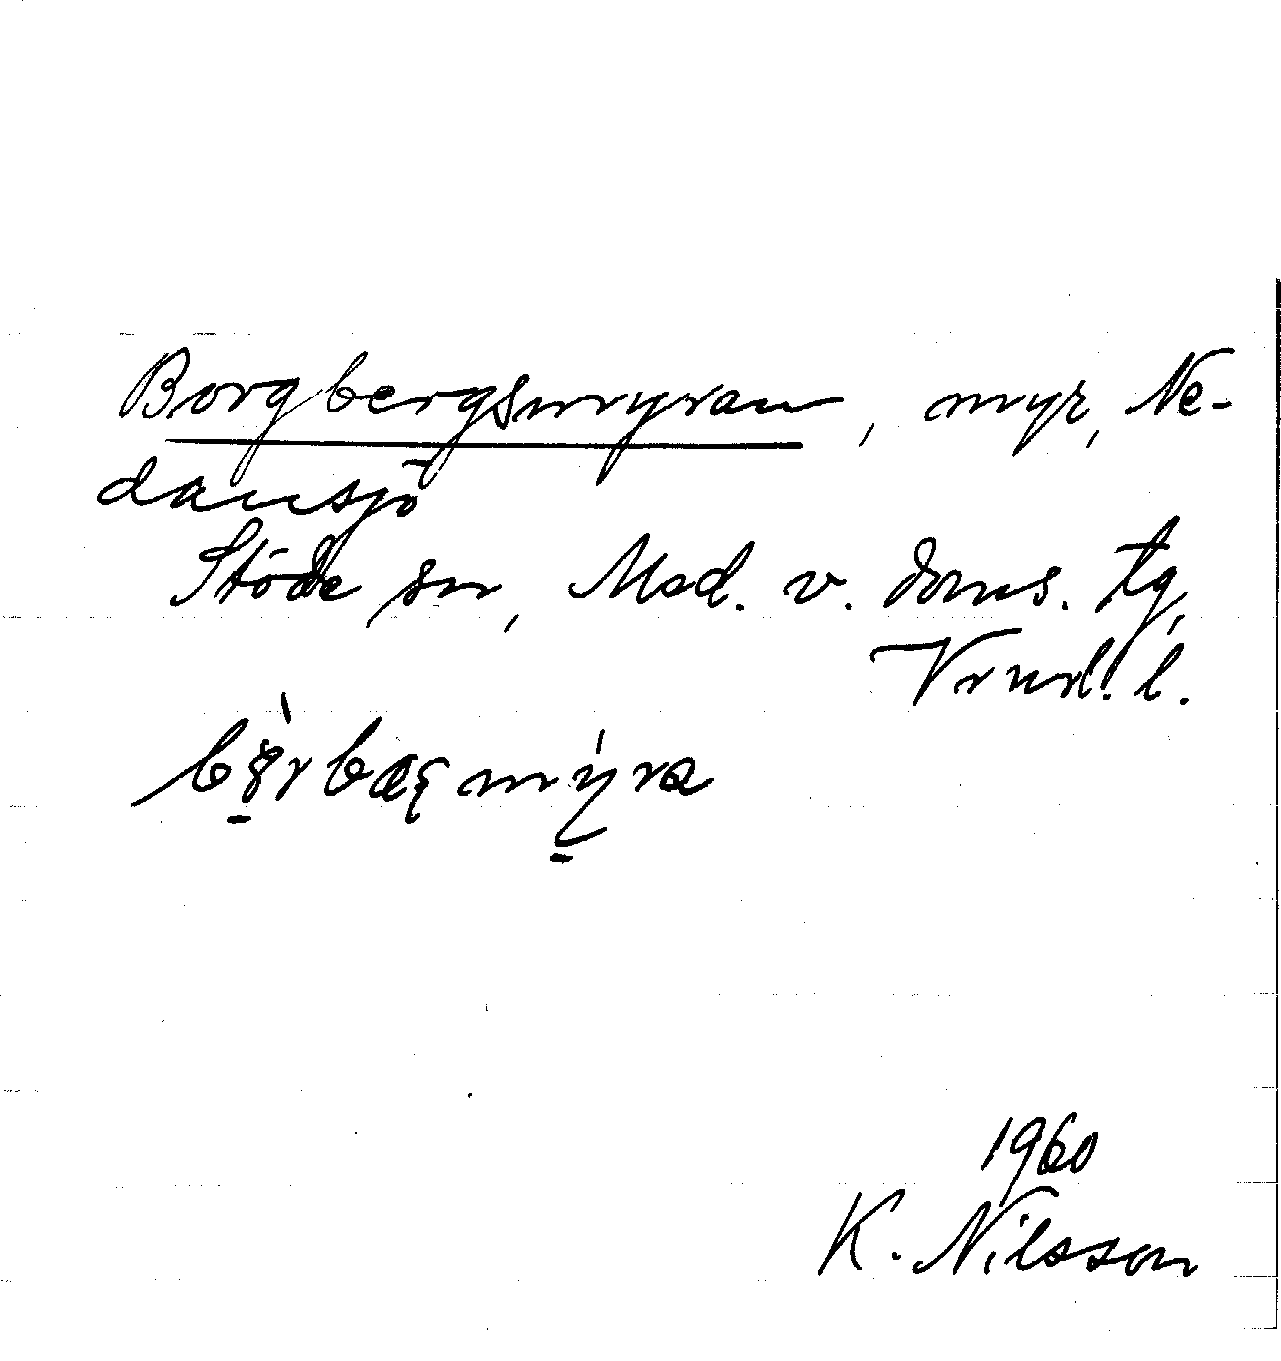 Borgbergsmyran, myr, Ne-
dansjö
Stöde sn, Med. v. doms. tg,
Vrnrl. l.
myra
1960
K. Nilsson